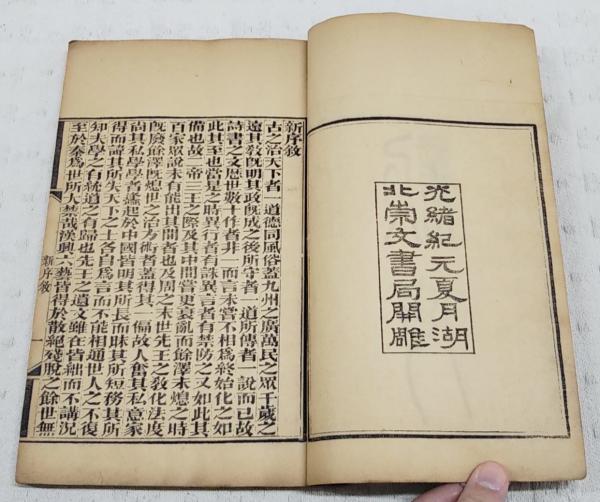 光緒紀元夏月湖
北崇文書局開雕
新序敘
古之治天下者一道德同風俗蓋九州之廣萬民之眾千歲之
遠其敎旣明其政旣成之後所守者一道所傳者一說而已故
詩書之文歷世數十作者非一而言未嘗不相爲終始化之如
此其至也當是之時異行者有誅異言者有禁防之又如此其
備也故二帝三王之際及其中間嘗更衰亂而餘澤未熄之時
百家眾說未有能出其間者也及周之末世先王之敎化法度
旣廢餘澤旣熄世之治方術者蓋得其一偏故人奮其私意家
尚其私學學者蠭起於中國皆明其所長而昧其所短務其所
得而諱其所失天下之士各自爲言而不能相通世人之不復
知夫學之有統道之有歸也先王之遺文雖在皆絀而不講況
至於秦爲世所大禁哉漢興六藝皆得於散絕殘脫之餘世無
新序敘
一